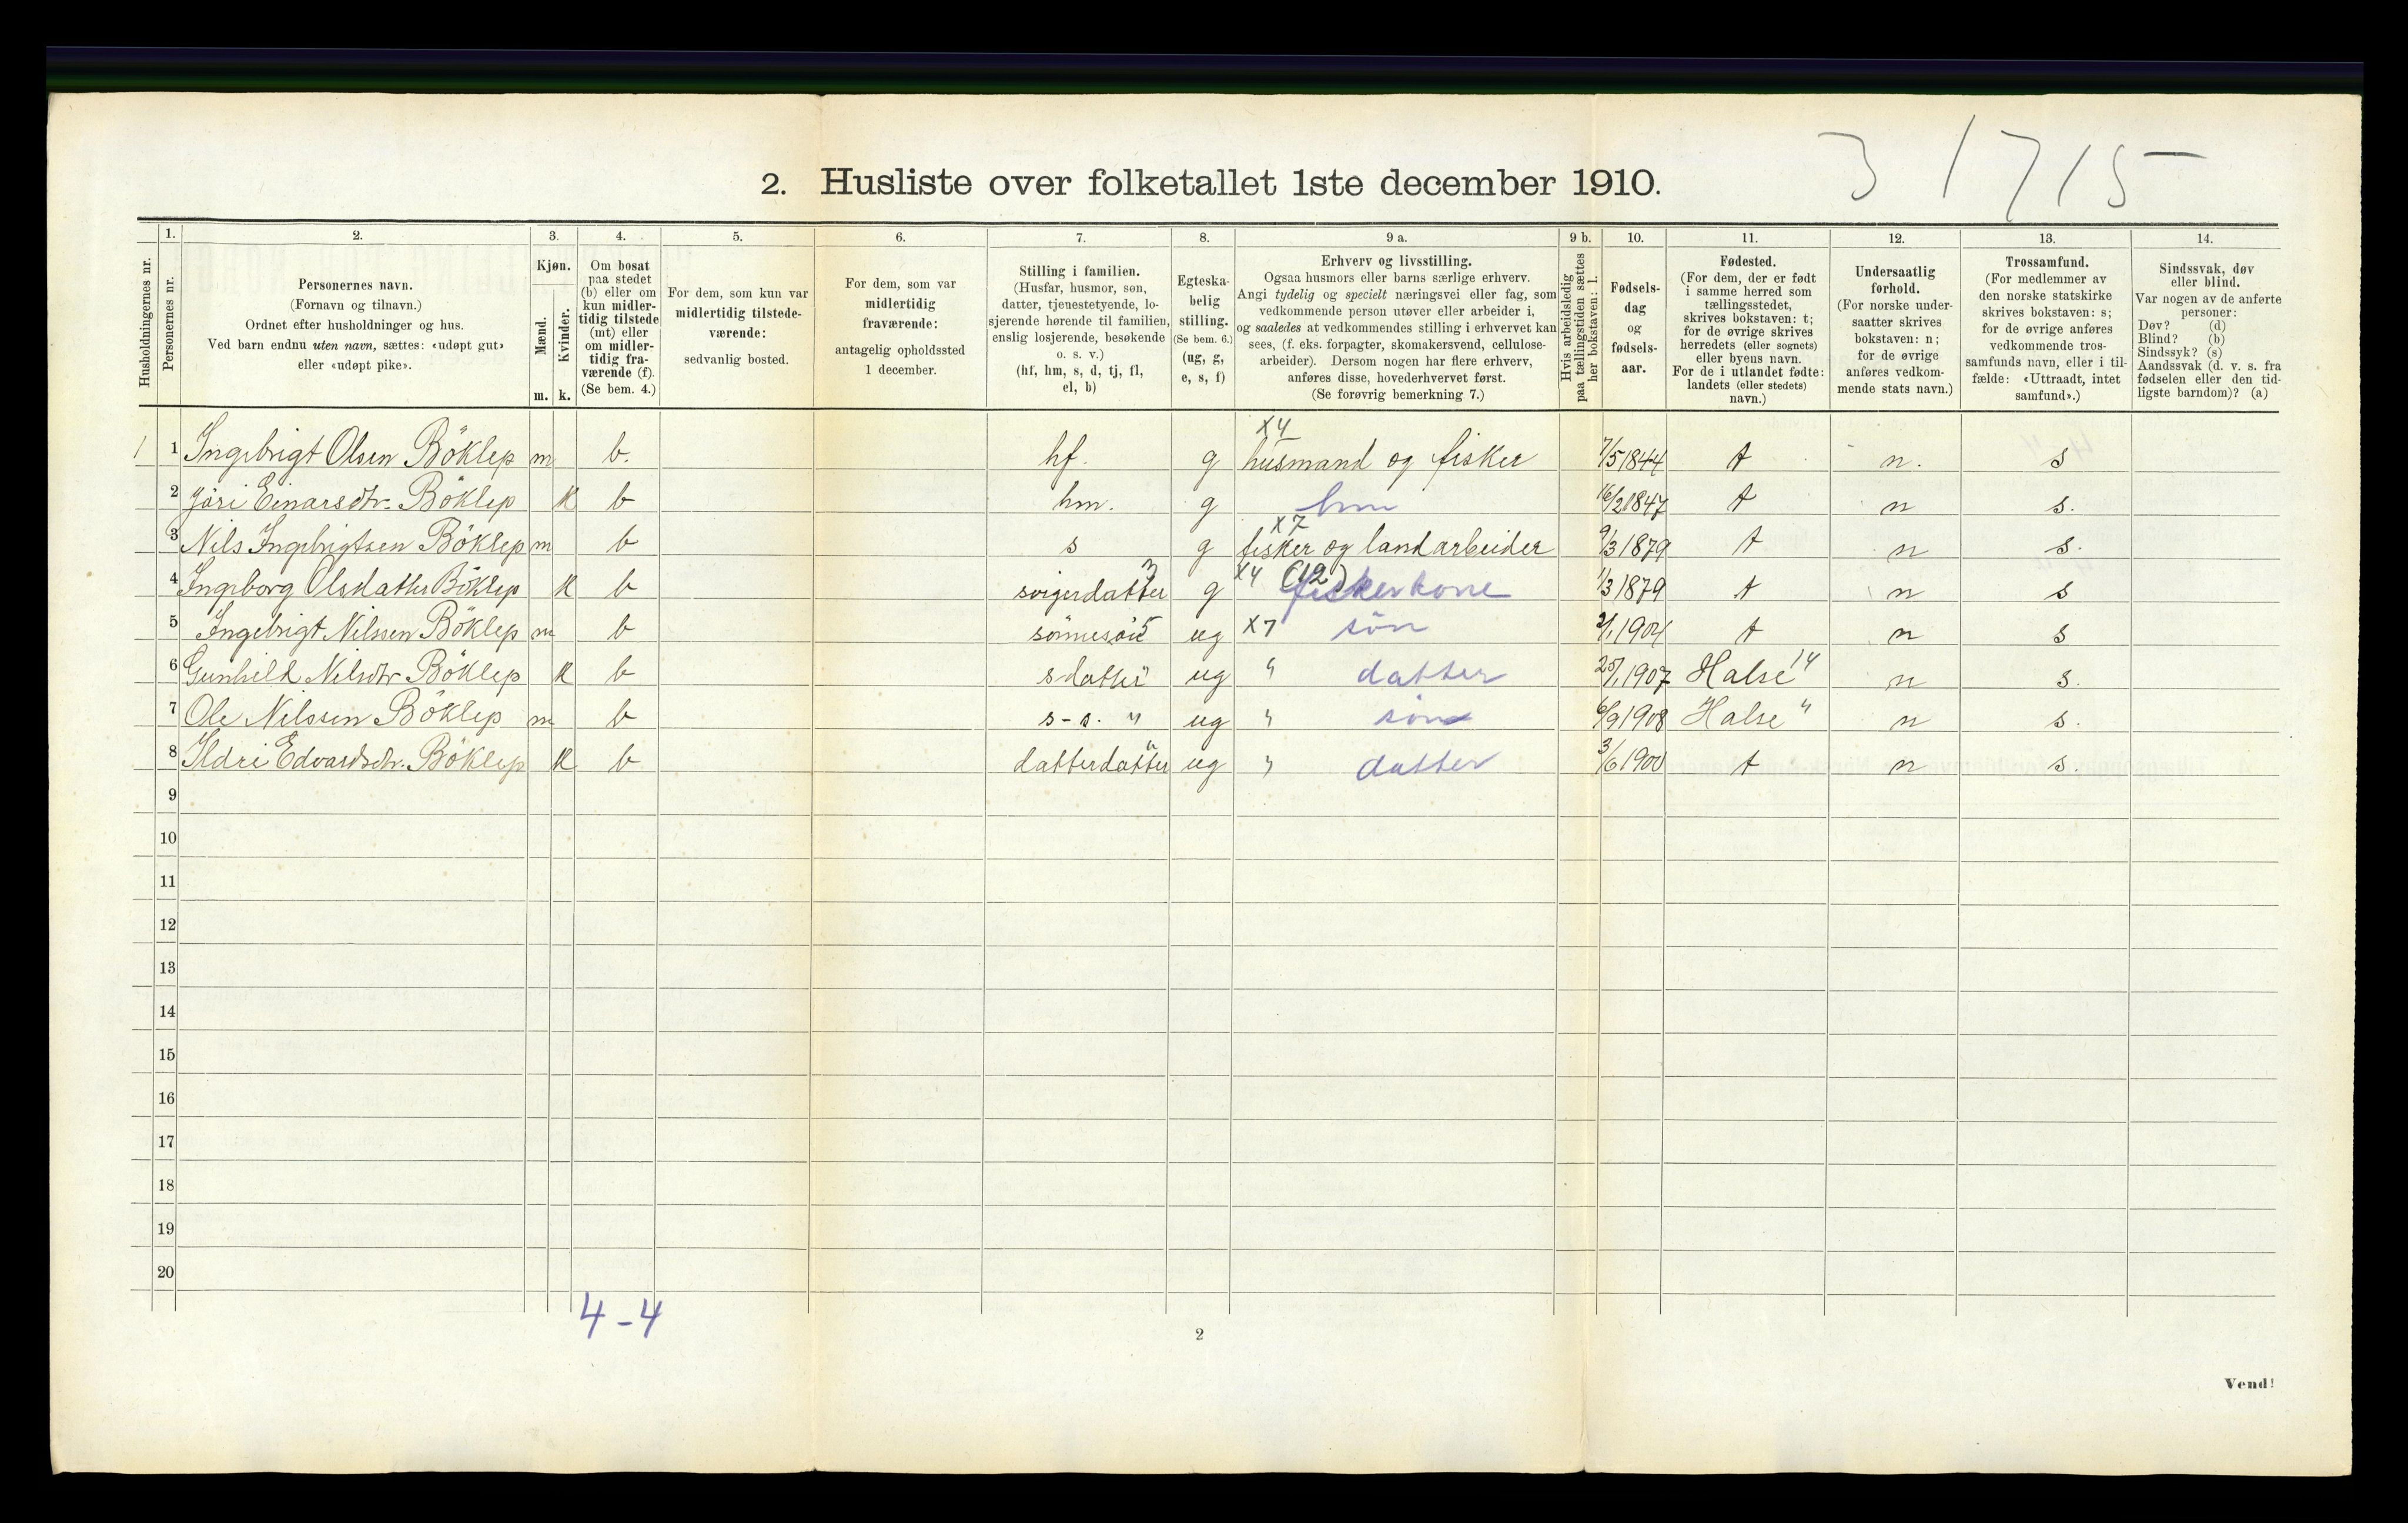 3 1715
2. Husliste over folketallet 1ste december 1910.
Husholdningernes nr.
1.
Personernes nr.
2.
Personernes navn.
(Fornavn og tilnavn.)
Ordnet efter husholdninger og hus.
Ved barn endnu uten navn, sættes: «udøpt gut»
eller «udøpt pike».
3.
Kjøn.
Mænd.
Kvinder.
m. k.
4.
Om bosat
paa stedet
(b) eller om
kun midler-
tidig tilstede
(mt) eller
om midler-
tidig fra-
værende (f).
(Se bem. 4.)
5.
For dem, som kun var
midlertidig tilstede-
værende:
sedvanlig bosted.
6.
For dem, som var
midlertidig
fraværende:
antagelig opholdssted
1 december.
7.
Stilling i familien.
(Husfar, husmor, søn,
datter, tjenestetyende, lo-
sjerende hørende til familien,
enslig losjerende, besøkende
o. s. v.)
(hf, hm, s, d, tj, fl,
el, b)
8.
Egteska-
belig
stilling.
(Se bem. 6.)
(ug, g,
e, s, f)
9 a.
Erhverv og livsstilling.
Ogsaa husmors eller barns særlige erhverv.
Angi tydelig og specielt næringsvei eller fag, som
vedkommende person utøver eller arbeider i,
og saaledes at vedkommendes stilling i erhvervet kan
sees, (f. eks. forpagter, skomakersvend, cellulose-
arbeider). Dersom nogen har flere erhverv,
anføres disse, hovederhvervet først.
(Se forøvrig bemerkning 7.)
9 b.
Hvis arbeidsledig
paa tællingstiden sættes
her bokstaven: l.
10.
Fødsels-
dag
og
fødsels-
aar.
11.
Fødested.
(For dem, der er født
i samme herred som
tællingsstedet,
skrives bokstaven: t;
for de øvrige skrives
herredets (eller sognets)
eller byens navn.
For de i utlandet fødte:
landets (eller stedets)
navn.)
12.
Undersaatlig
forhold.
(For norske under-
saatter skrives
bokstaven: n;
for de øvrige
anføres vedkom-
mende stats navn.)
13.
Trossamfund.
(For medlemmer av
den norske statskirke
skrives bokstaven: s;
for de øvrige anføres
vedkommende tros-
samfunds navn, eller i til-
fælde: «Uttraadt, intet
samfund».)
14.
Sindssvak, døv
eller blind.
Var nogen av de anførte
personer:
Døv? (d)
Blind? (b)
Sindssyk? (s)
Aandssvak (d. v. s. fra
fødselen eller den tid-
ligste barndom)? (a)
X4
1 1 Ingebrigt Olsen Böklep m b. hf. g husmand og fisker 7/5 1844 t n. s
2 Jöri Einarsdtr. Böklep k b hm. g hm 16/2 1847 t n s.
X7
3 Nils Ingebrigtsen Böklep m b s g fisker og landarbeider 9/3 1879 t n s.
4 Ingeborg Olsdatter Böklep k b svigerdatter 3 g X4 (12) fiskerkone 1/3 1879 t n s
5 Ingebrigt Nilssen Böklep m b sönnesön 5 ug X7 sön 2/1 1904 t n s
6 Gunhild Nilsdtr Böklep k b s datter " ug " datter 25/1 1907 Halse 14 n s.
7 Ole Nilssen Böklep m b s-s. " ug " sön 6/9 1908 Halse " n s.
8 Ildri Edvardsdtr. Böklep k b datterdatter " ug " datter 3/6 1900 t n s.
9
10
11
12
13
14
15
16
17
18
19
20
4-4
2
Vend!